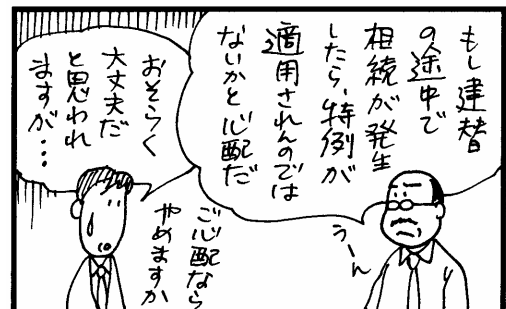 もし建替
の途中で
相続が発生
したら、特例が
適用されんのでは
ないかと心配だ
うーん
おそらく
大丈夫だ
と思われ
ますが・・・
ご心配なら
やめますか